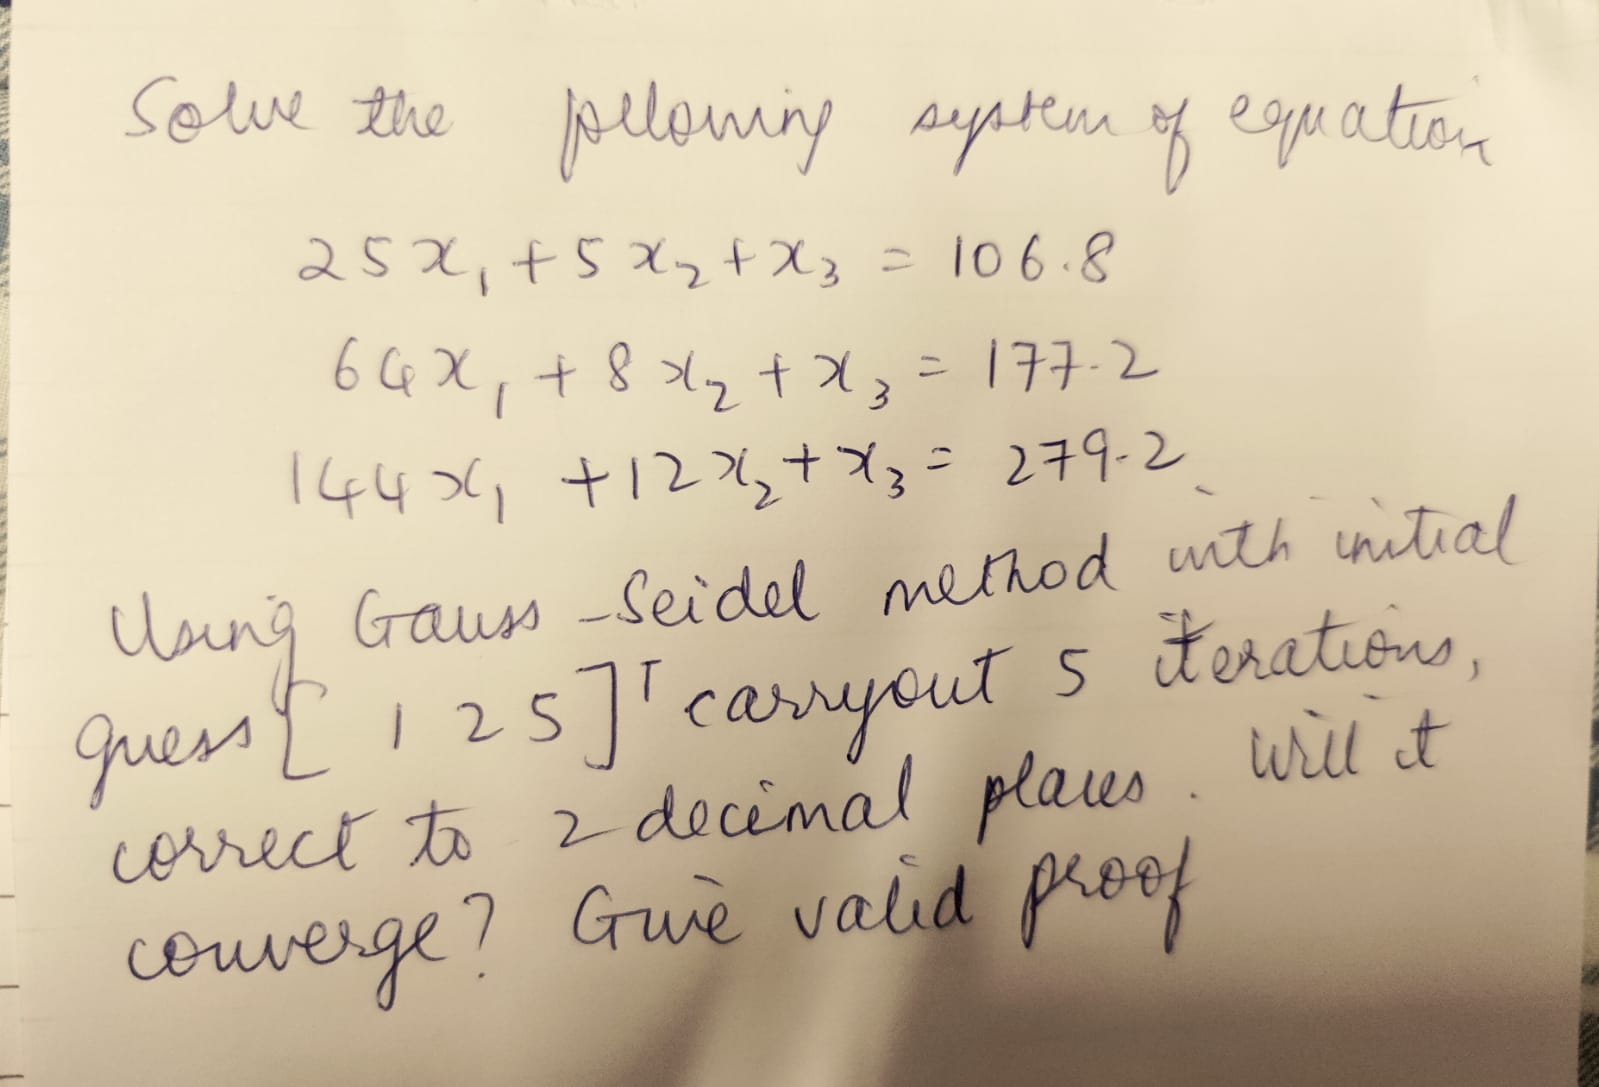 Solve the following system of equation
25x₁ + 5x₂ + x₃ = 106.8
64x₁ + 8x₂ + x₃ = 177.2
144x₁ + 12x₂ + x₃ = 279.2
Using Gauss-Seidel method with initial
guess [1 2 5]ᵀ carryout 5 iterations,
correct to 2 decimal places. Will it
converge? Give valid proof